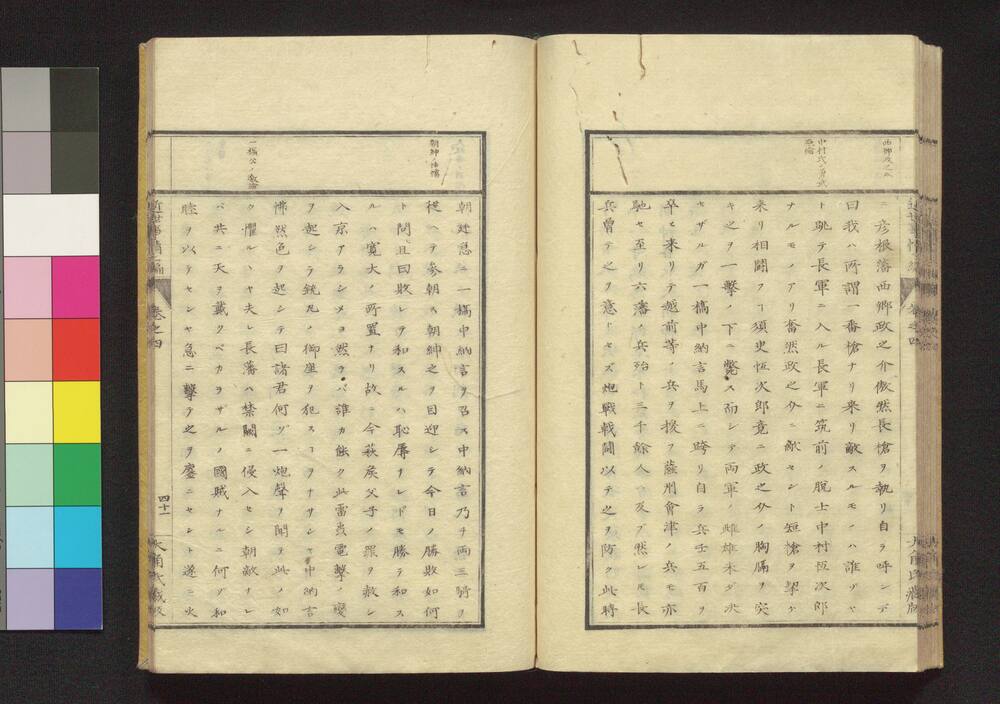 西郷政之介
中村氏ノ勇武
ニ彦根藩西郷政之介傲然長槍ヲ執リ自ラ呼ンデ
曰我ハ所謂一番槍ナリ来リ敵スルモノハ誰ゾヤ
ト跳テ長軍ニ入ル長軍ニ筑前ノ脱士中村恆次郎
ナルモノアリ奮然政之介ニ敵セント短槍ヲ挈ゲ
来リ相闘フヿ須臾恆次郎竟ニ政之介ノ胸膈ヲ突
キ之ヲ一擊ノ下ニ斃ス而シテ両軍ノ雌雄未ダ决
セザルガ一橋中納言馬上ニ跨リ自ラ兵士五百ヲ
卒ヒ来リテ越前等ノ兵ヲ援ヲ薩州會津ノ兵モ亦
馳セ至リ六藩ノ兵殆ト三千餘人ニ及ブ然レモ長
兵曽テ之ヲ意トセズ炮戦戦闘以テ之ヲ防ク此時
朝紳ノ怯懦
一橋公ノ激論
朝廷急ニ一橋中納言ヲ召ス中納言乃チ両三騎ヲ
從ヘテ参朝ス朝紳之ヲ目迎シテ今日ノ勝敗如何
ト問且曰敗レヲ和スルハ恥辱ナレドモ勝テ和ス
ルハ寛大ノ所置ナリ故ニ今萩矦父子ノ罪ヲ赦シ
入京アラシメヨ然ラバ誰カ能ク此雷轟電擊ノ變
ヲ起シラ銃丸ノ御座ヲ犯スヿヲナサンヤ中納言
怫然色ヲ起シテ曰諸君何ゾ一炮聲ヲ聞ヲ此ノ如
ク懼ルヽヤ夫レ長藩ハ禁闕ニ侵入セシ朝敵ナレ
バ共ニ天ヲ戴クベカラザルノ國賊ナルニ何ゾ和
睦ヲ以テセンヤ急ニ擊テ之ヲ鏖ニセント遂ニ火
近世事情二編
巻之四
四十一